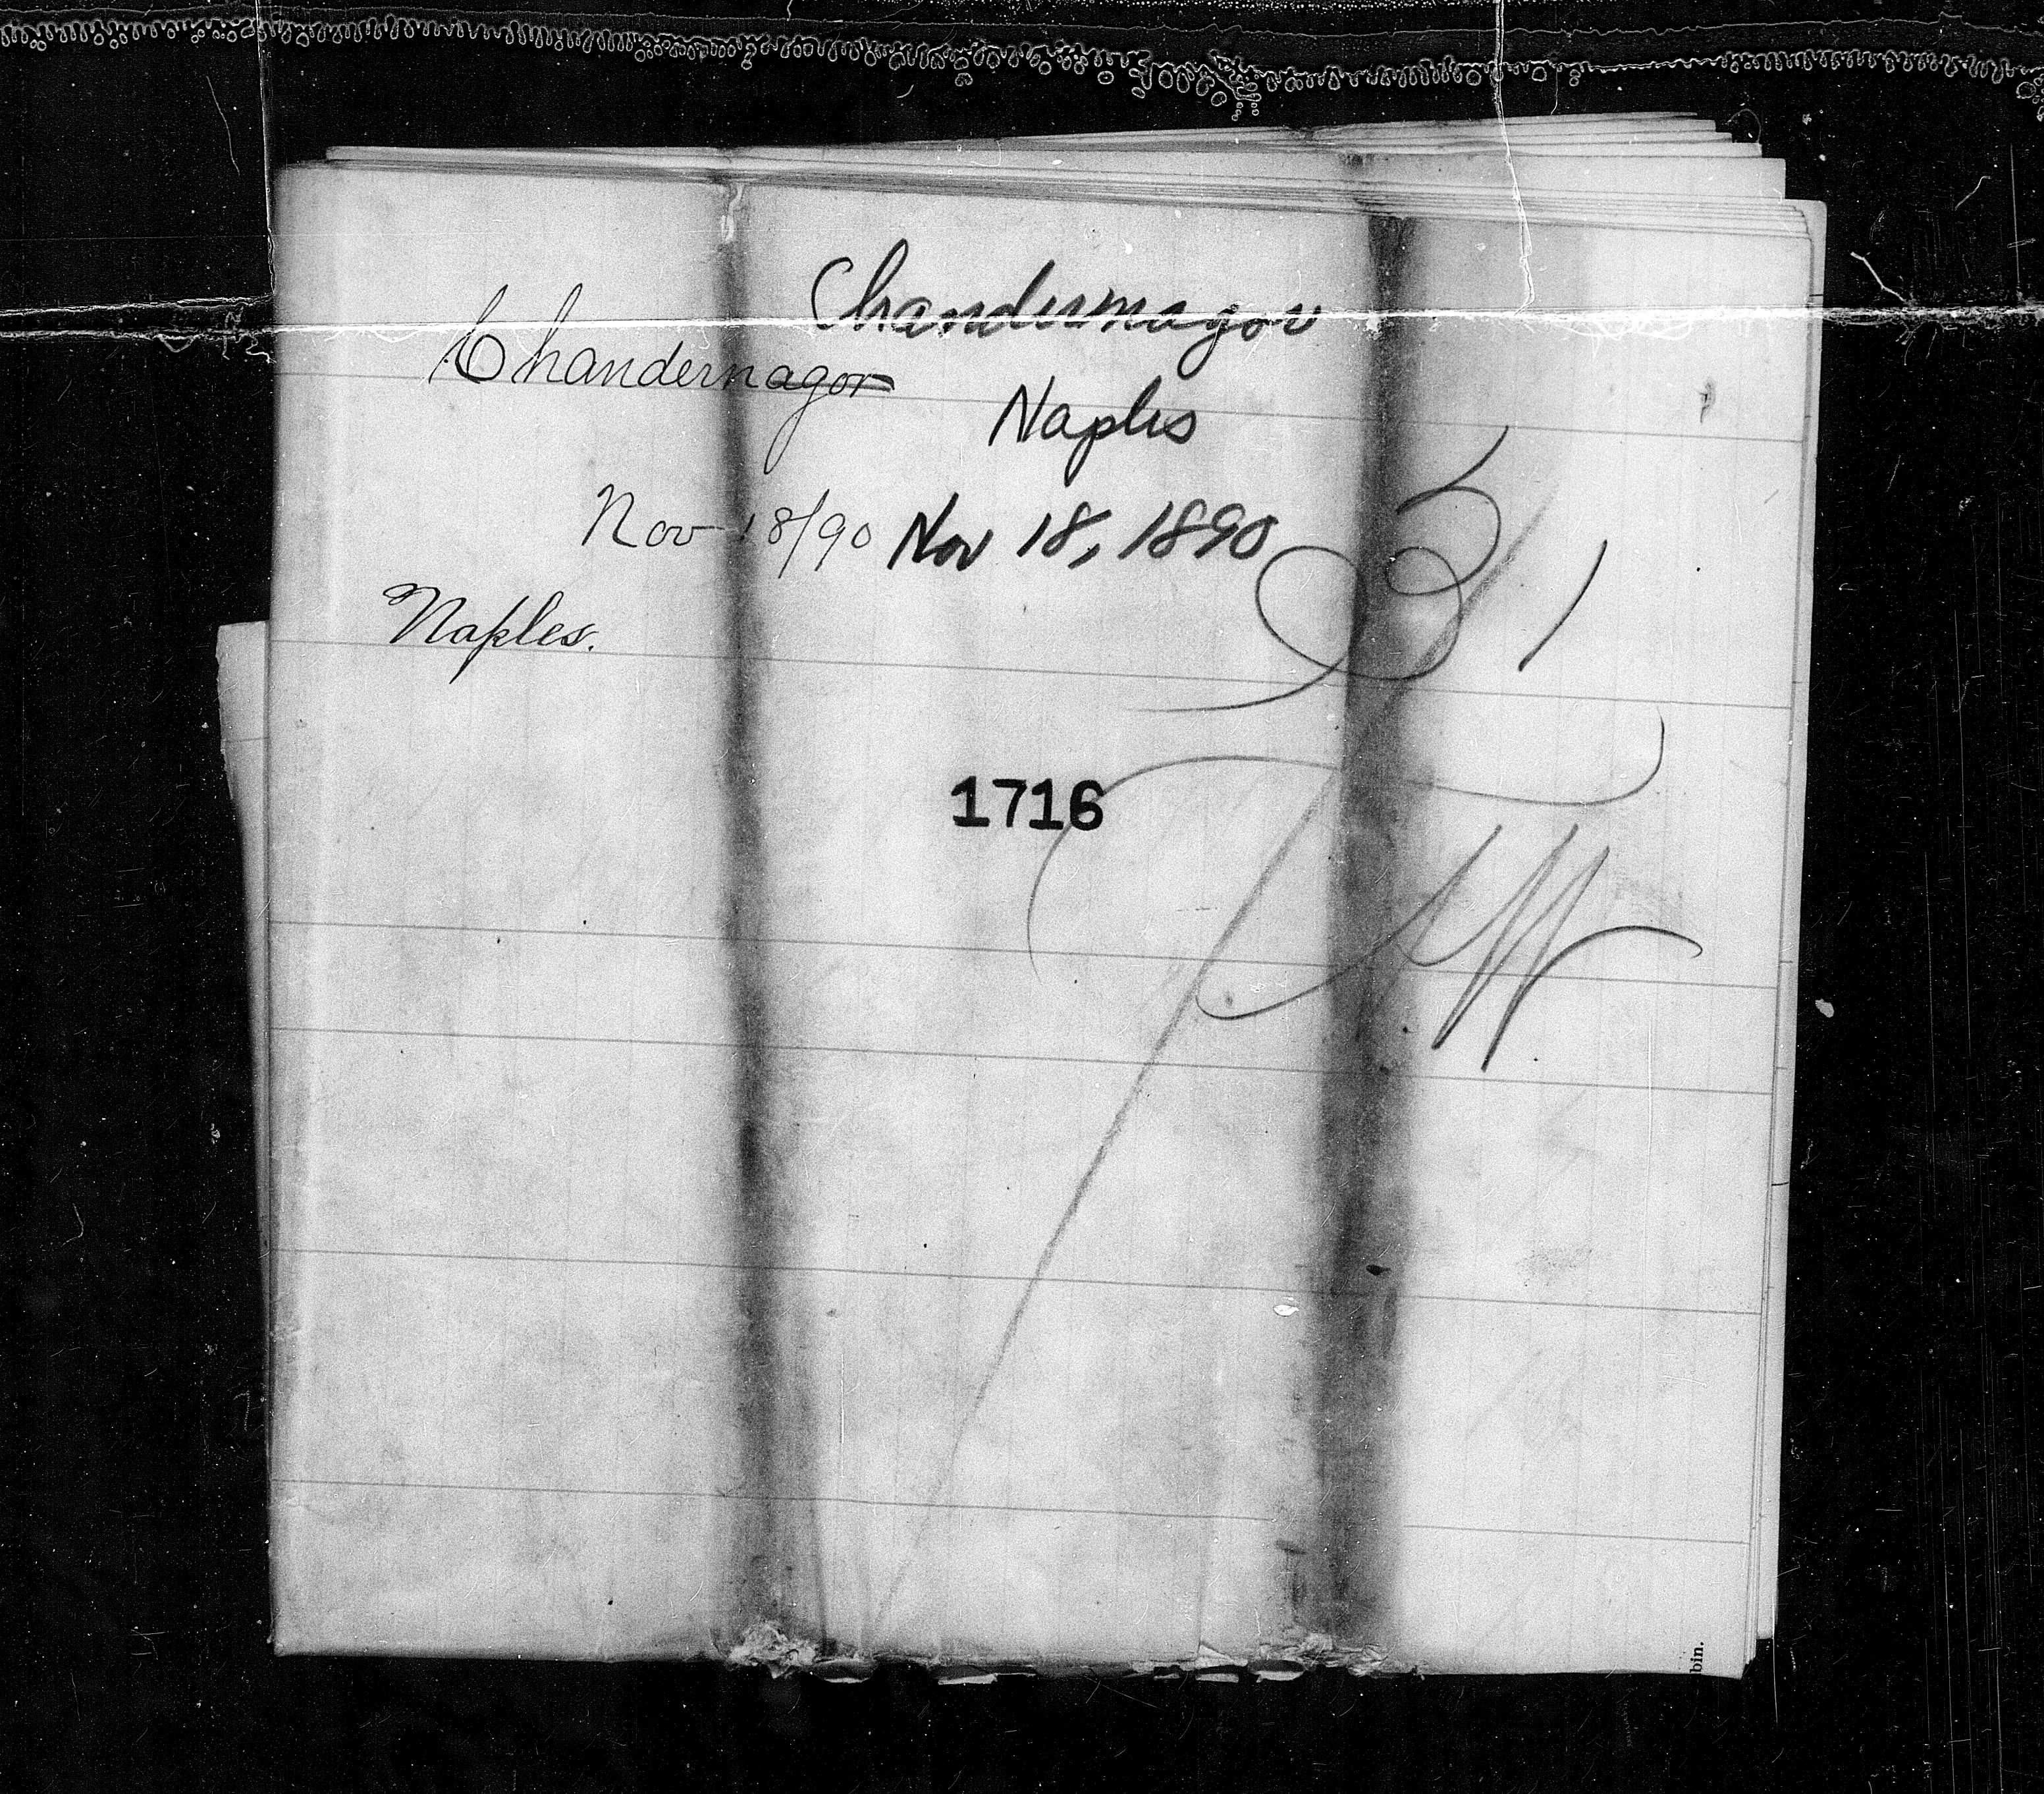 Chandernagor
Chandernagor
Naples
Nov 18/90
Nov 18, 1890
Naples.
1716
bin.